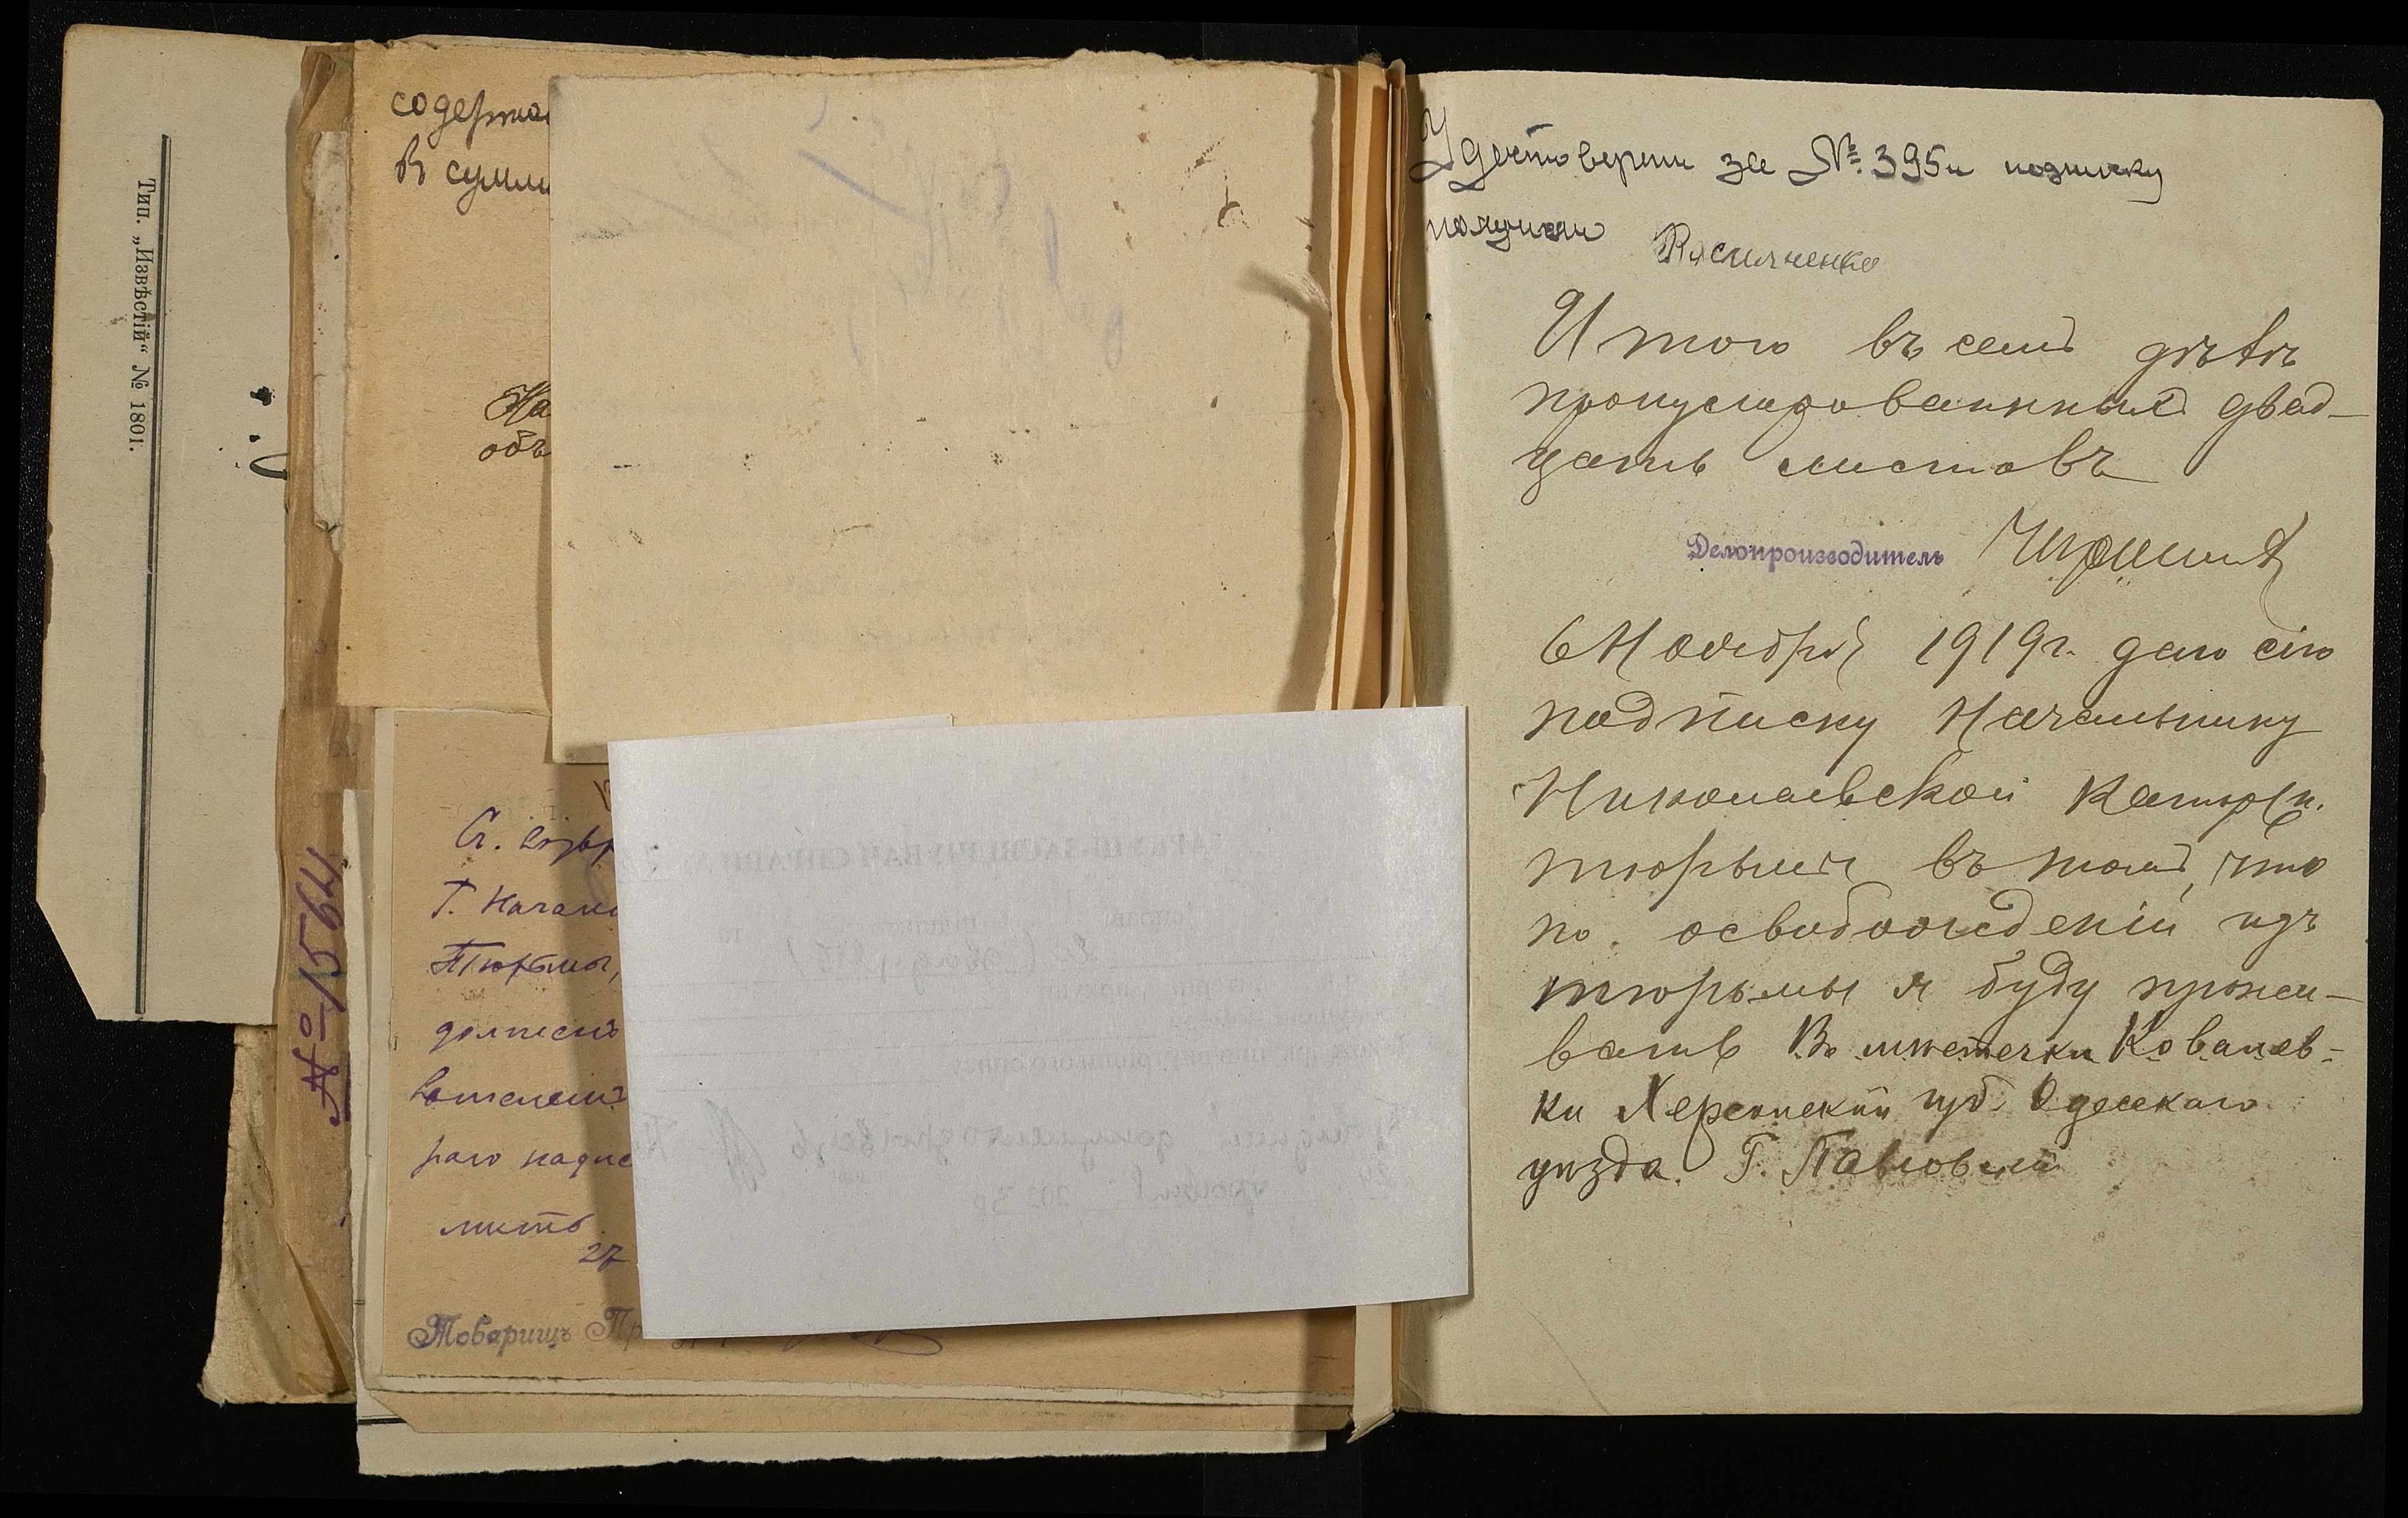 Тип. „Извѣстій“ № 1801.
№ 15564
содержа
В сумм
На
объ
Г. Начал
Тюрьмы,
должест
раго надле
лить
27
Товарищъ Пр
Удостоверени за № 395 и подписку
получил
Василченко
Итого въ семъ дѣлѣ
пронумерованныхъ двад-
цать листовъ
Делопроизводитель
6 Ноября 1919 г. даю сію
подписку Начальнику
Николаевской Каторжн.
тюрьмы въ томъ, что
по освобожденіи изъ
тюрьмы я буду прожи-
вать Во мѣстечки Ковалев-
ки Херсонский губ. Одесскаго
уизда. Г. Павловский